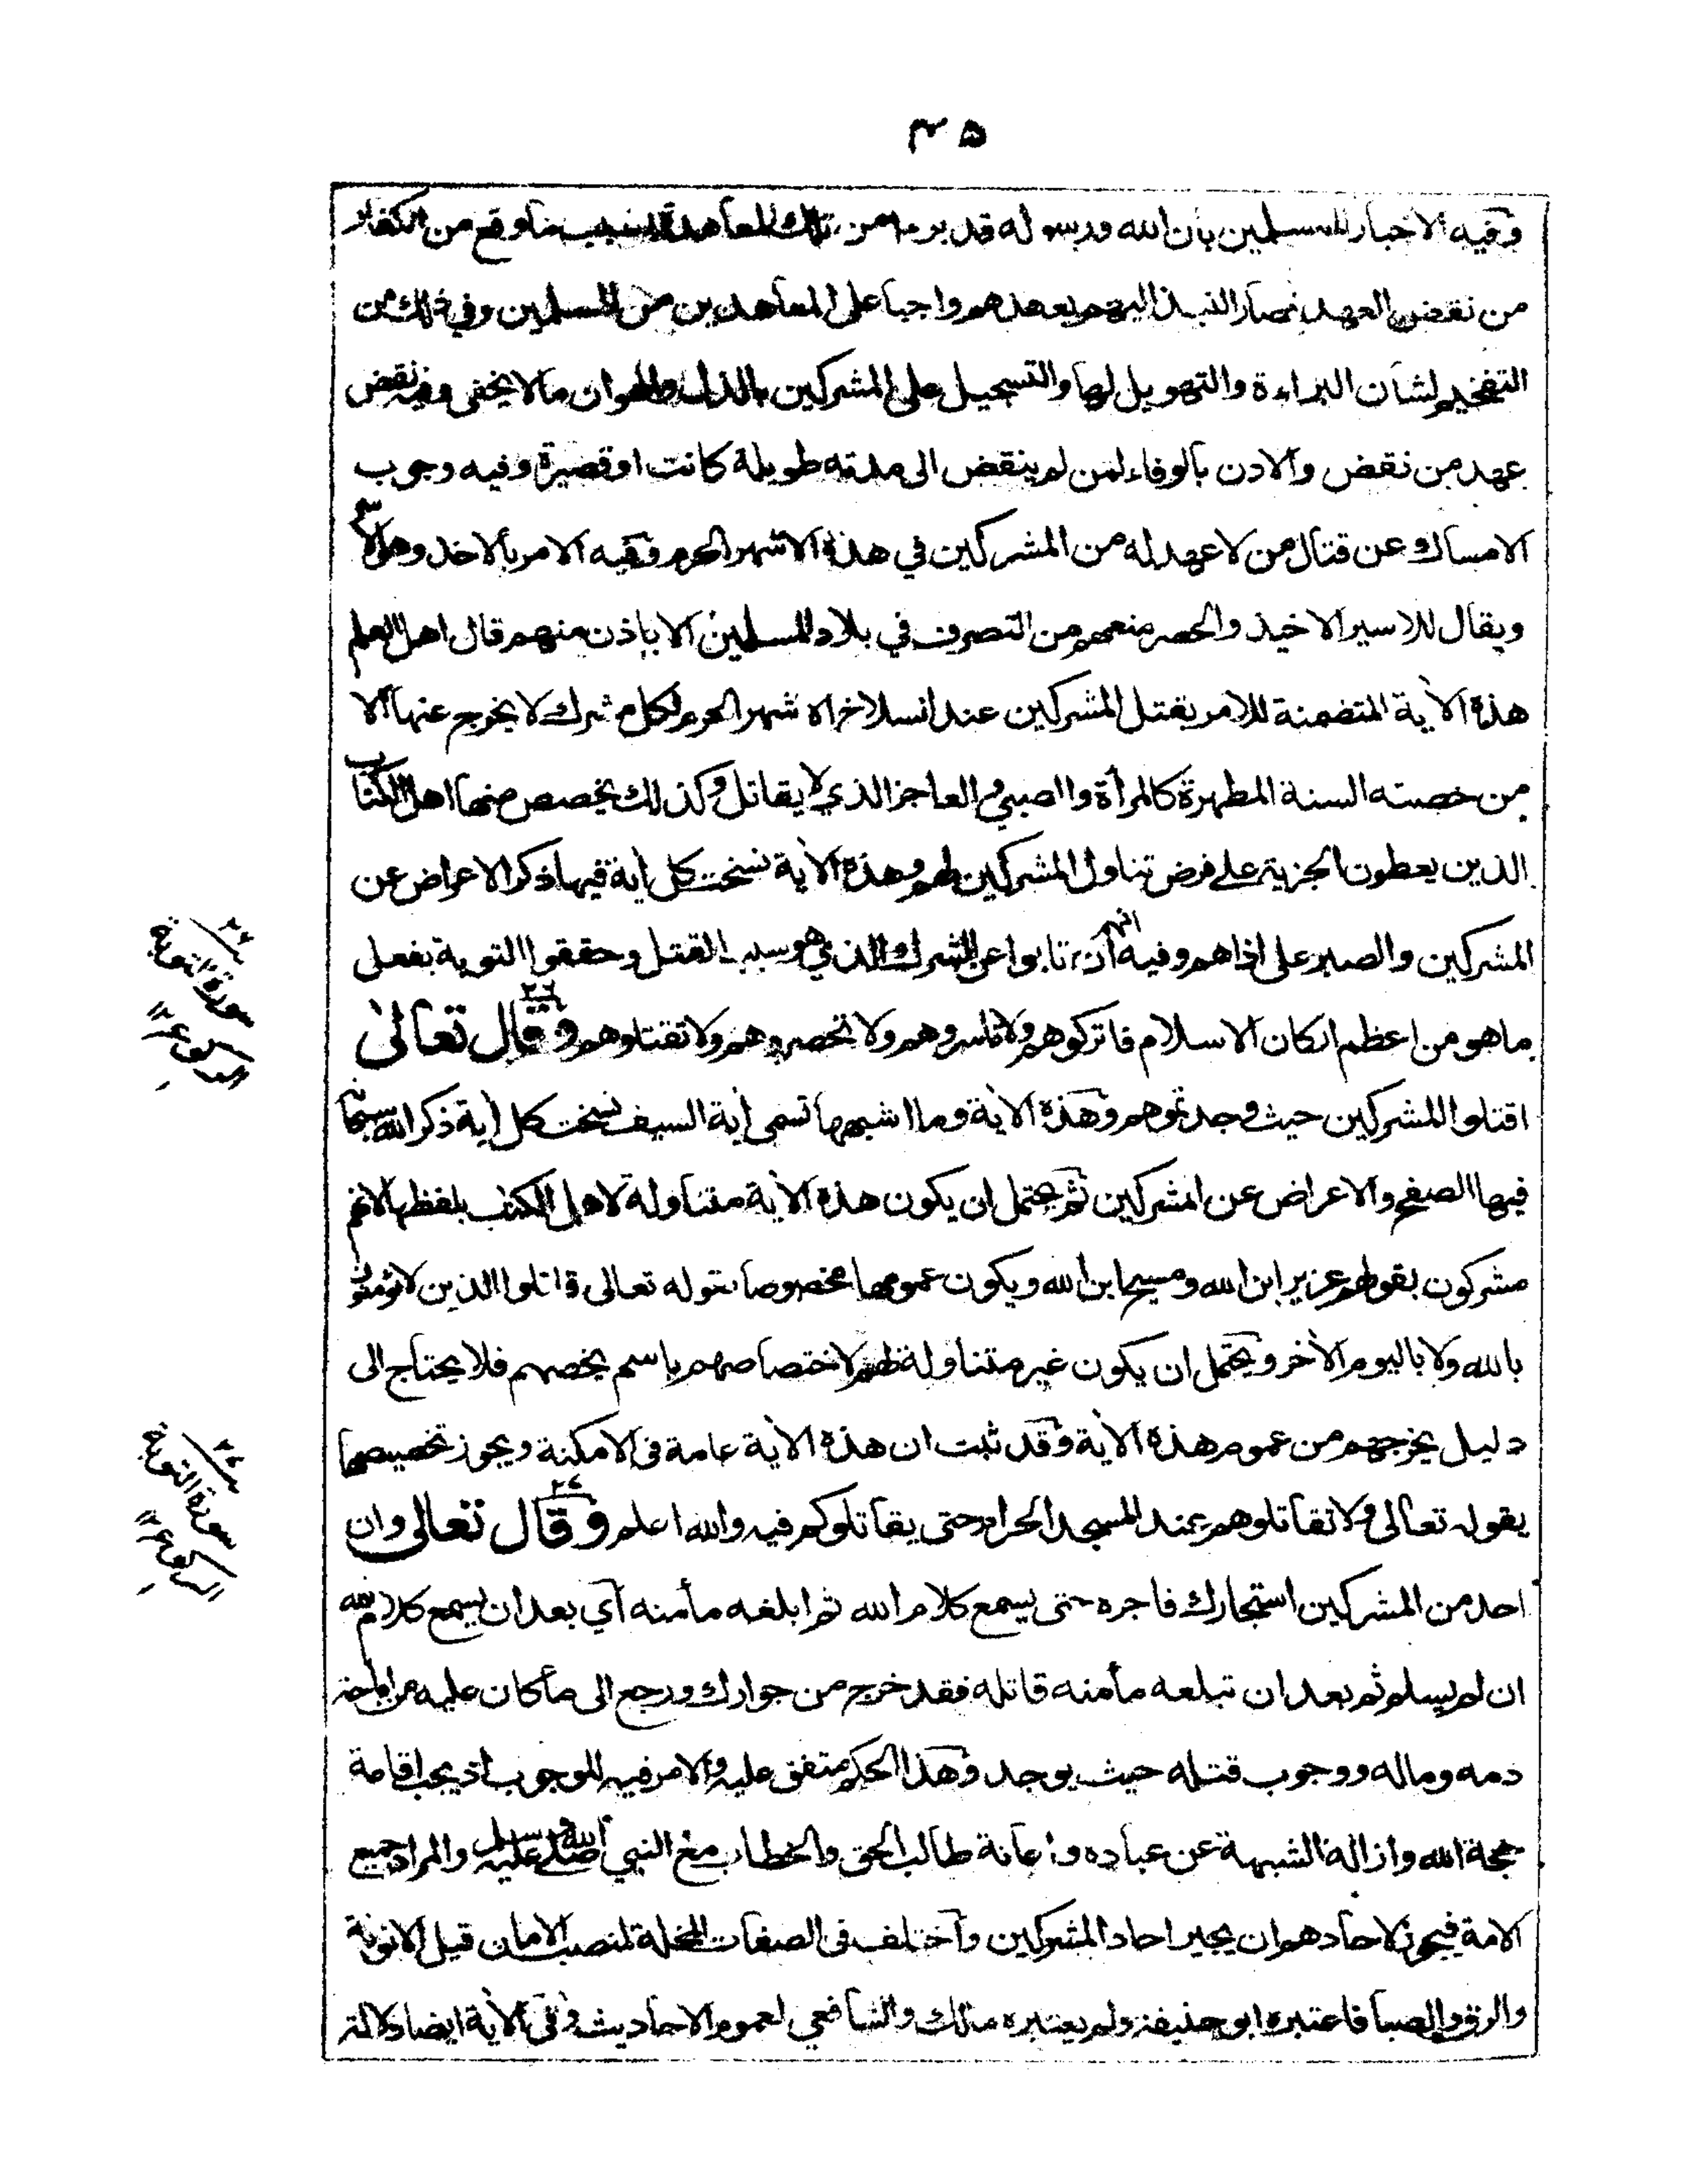 ٣٥
وفيه الاخبار للمسلمين بان الله ورسوله قد برءا من تلك المعاهدة بسبب ما وقع من الكفار
من نقض العهد فصار النبذ اليهم بعهدهم واجبا على المعاهدين من المسلمين وفي ذلك من
التفخيم لشان البراءة والتهويل لها والتسجيل على المشركين بالذل والهوان ما لا يخفى وفيه نقض
عهد من نقض والاذن بالوفاء لمن لم ينقض الى مدته طويلة كانت او قصيرة وفيه وجوب
الامساك عن قتال من لا عهد له من المشركين في هذه الاشهر الحرم وفيه الامر بالاخذ وهو الاسر
ويقال للاسير الاخيذ والحصر منعهم من التصرف في بلاد المسلمين الا باذن منهم قال اهل العلم
هذه الأية المتضمنة للامر بقتل المشركين عند انسلاخ الاشهر الحرم لكل مشرك لا يخرج عنها الا
من خصته السنة المطهرة كالمرأة والصبي والعاجز الذي لا يقاتل وكذلك يخصص منها اهل الكتاب
الذين يعطون الجزية على فرض تناول المشركين لهم وهذه الأية نسخت كل أية فيها ذكر الاعراض عن
المشركين والصبر على اذاهم وفيه انهم ان تابوا عن الشرك الذي هو سبب القتل وحققوا التوبة بفعل
ما هو من اعظم اركان الاسلام فاتركوهم ولا تاسروهم ولا تحصروهم ولا تقتلوهم ٢٦ وقال تعالى
٢٦ سورة التوبة الركوع ١
اقتلوا المشركين حيث وجدتموهم وهذه الأية وما اشبهها تسمى أية السيف نسخت كل أية ذكر الله سبحانه
فيها الصفح والاعراض عن المشركين ثم يحتمل ان يكون هذه الأية متناولة لاهل الكتب بلفظها لانهم
مشركون بقولهم عزير ابن الله ومسيح ابن الله ويكون عمومها مخصوصا بقوله تعالى قاتلوا الذين لا يؤمنون
بالله ولا باليوم الأخر ويحتمل ان يكون غير متناولة لهم لاختصاصهم باسم يخصهم فلا يحتاج الى
دليل يخرجهم من عموم هذه الأية وقد ثبت ان هذه الأية عامة فى الامكنة ويجوز تخصيصها
بقوله تعالى ولا تقاتلوهم عند المسجد الحرام حتى يقاتلوكم فيه والله اعلم ٢٧ وقال تعالى وان
٢٧ سورة التوبة الركوع ١
احد من المشركين استجارك فاجره حتى يسمع كلام الله ثم ابلغه مأمنه أي بعد ان يسمع كلام الله
ان لم يسلم ثم بعد ان تبلغه مأمنه قاتله فقد خرج من جوارك ورجع الى ما كان عليه من اباحة
دمه وماله ووجوب قتله حيث يوجد وهذا الحكم متفق عليه والامر فيه للوجوب اذ يجب اقامة
حجة الله وازالة الشبهة عن عباده واعانة طالب الحق والخطاب مع النبي صلى الله عليه وسلم والمراد جميع
الامة فيجوز لاحادهم ان يجير احاد المشركين واختلف فى الصفات المخلة لمنصب الامان قيل الانوثة
والرق والصبا فاعتبره ابو حنيفة ولم يعتبره مالك والشافعي لعموم الاحاديث وفى الأية ايضا دلالة